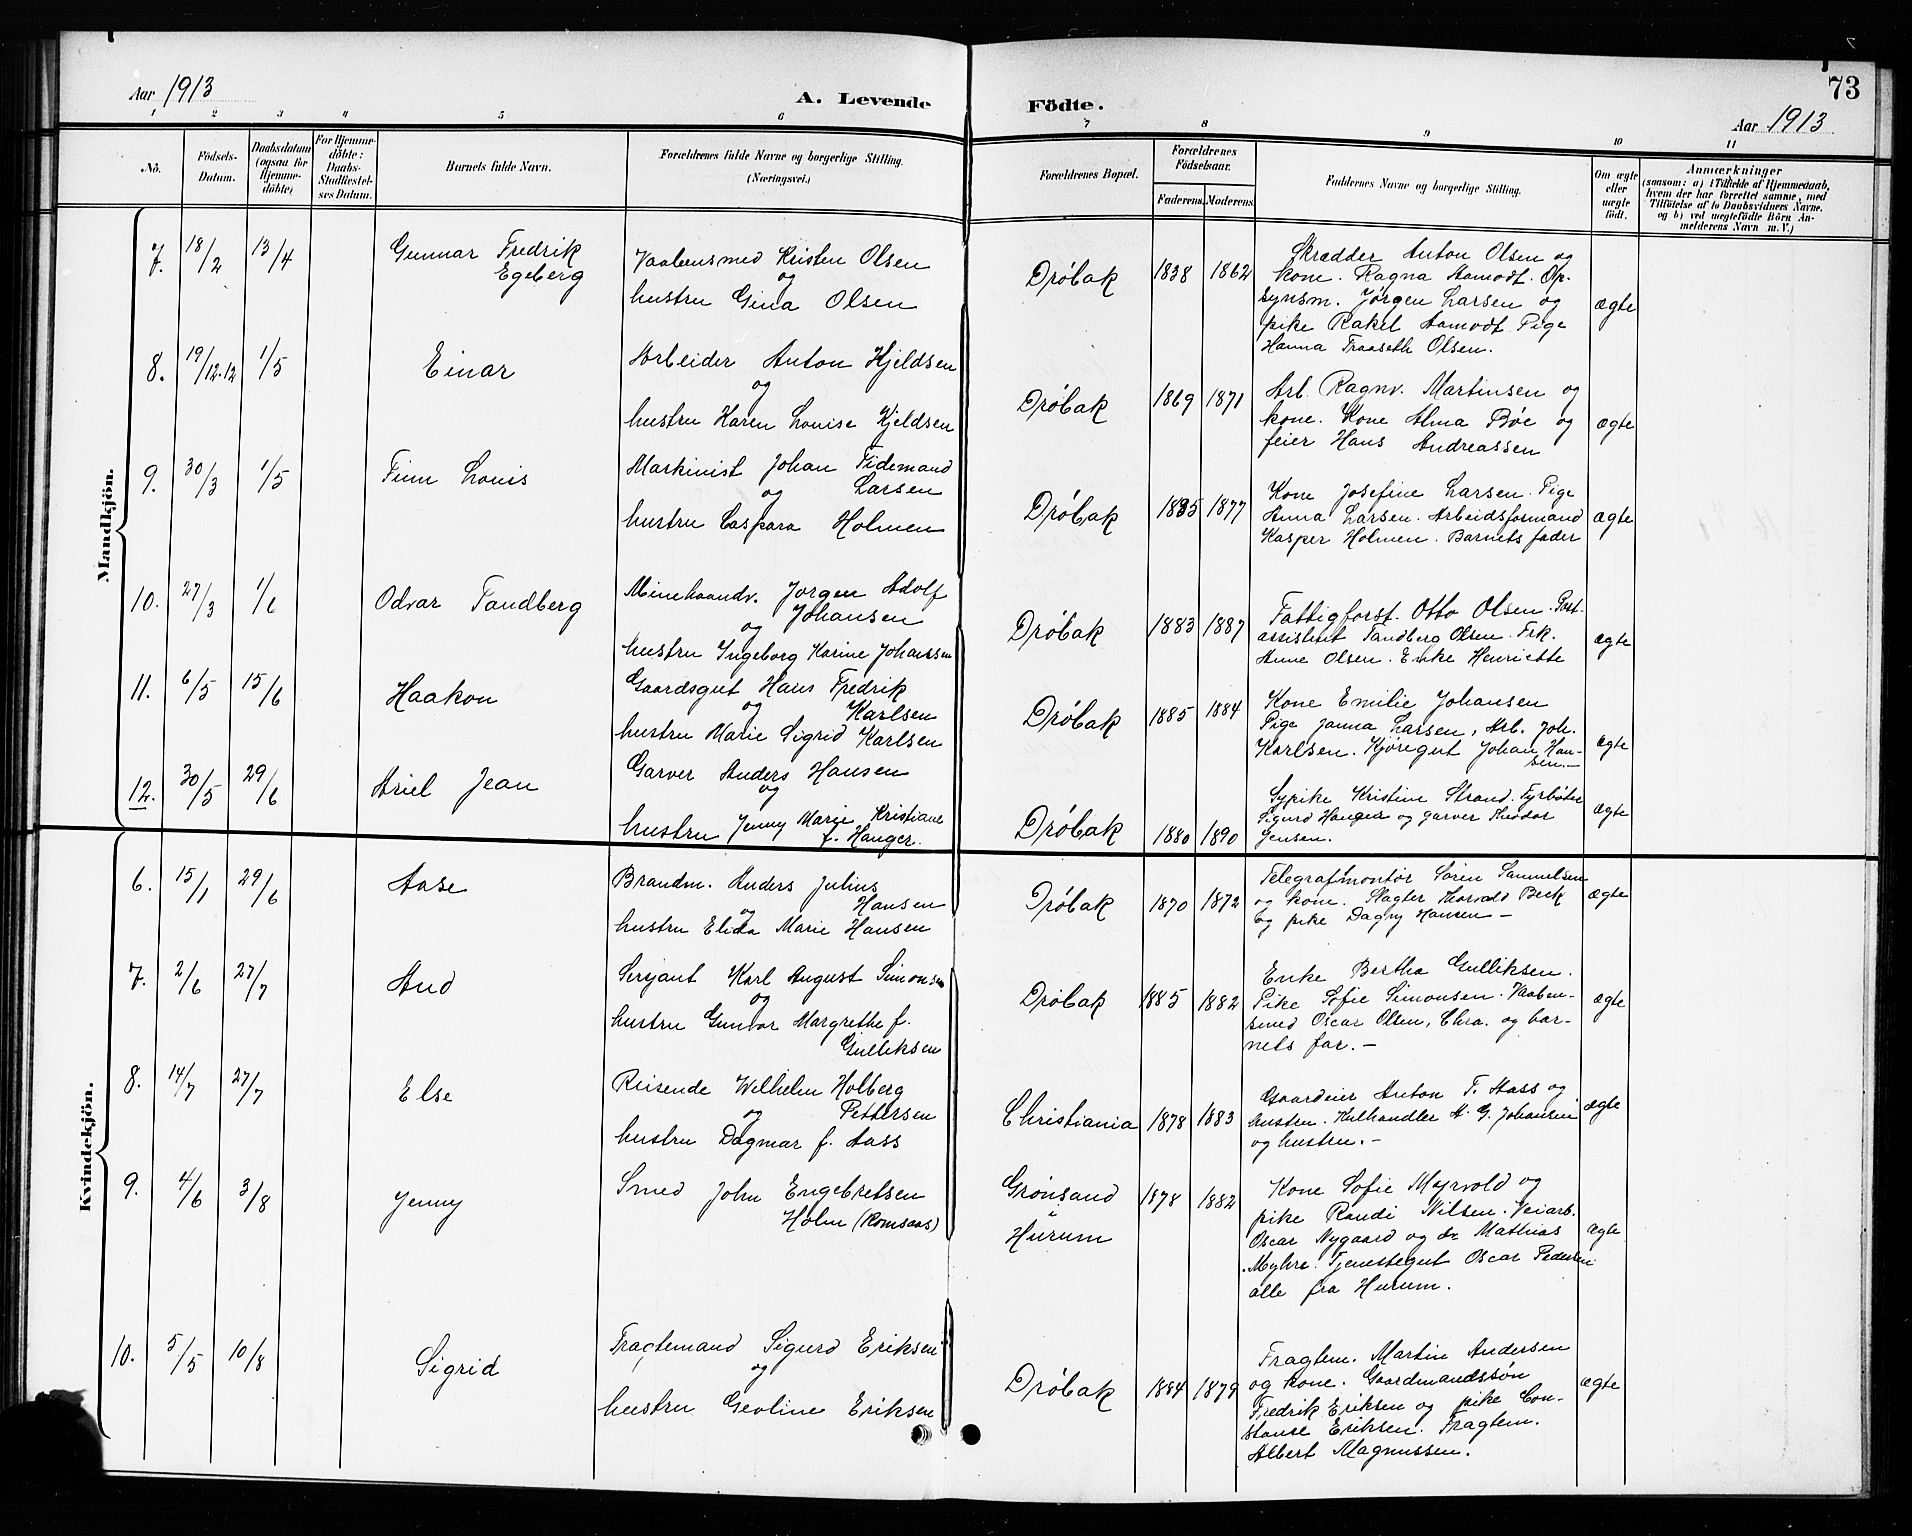 73
Aar 1913
A. Levende Födte.
Aar 1913
1 2 3 4 5 6 7 8 9 10 11
No.
Födsels-
Datum.
Daabsdatum
(ogsaa for
Hjemme-
döbte)
For Hjemme-
döbte:
Daabs-
Stadfæstel-
ses Datum.
Barnets fulde Navn.
Forældrenes fulde Navne og borgerlige Stilling.
(Næringsvei.)
Forældrenes Bopæl.
Forældrenes
Födselsaar.
Faderens. Moderens.
Faddernes Navne og borgerlige Stilling.
Om ægte
eller
uægte
födt.
Anmærkninger
(saasom: a) i Tilfælde af Hjemmedaab,
hvem der har forrettet samme, med
Tilföielse af to Daabsvidners Navne,
og b) ved uægtefödte Börn An-
melderens Navn m. V.)
Mandkjön.
7. 18/2 13/4 Gunnar Fredrik
Egeberg
Vaabensmed Kristen Olsen
og
hustru Gina Olsen
Drøbak 1838 1862
Skrædder Anton Olsen og
kone. Ragna Aamodt. Op-
synsm. Jørgen Larsen og
pike Rakel Aamodt. Pige
Hanna Traaseth Olsen.
ægte
8. 19/12.12 1/5 Einar
Arbeider Anton Kjeldsen
og
hustru Karen Louise Kjeldsen
Drøbak 1869 1871
Arb. Ragnv. Martinsen og
kone. Kone Alma Bøe og
feier Hans Andreassen
ægte
9. 30/3 1/5 Finn Louis
Maskinist Johan Tidemand
og Larsen
hustru Caspara Holmen
Drøbak 1885 1877
Kone Josefine Larsen. Pige
Anna Larsen. Arbeidsformand
Kasper Holmen. Barnets fader
ægte
10. 27/3 1/6 Odvar Tandberg
Minehaandv. Jørgen Adolf
og Johansen
hustru Ingeborg Karine Johanssen
Drøbak 1883 1887
Fattigforst. Otto Olsen. Post-
assistent Tandberg Olsen. Frk.
Anne Olsen. Enke Henriette
ægte
11. 6/5 15/6 Haakon
Gaardsgut Hans Fredrik
og Karlsen
hustru Marie Sigrid Karlsen
Drøbak 1885 1884
Kone Emilie Johansen
Pige Janna Larsen, Arb. Joh.
Karlsen. Kjøregut Johan Han-
sen.-
ægte
12. 30/5 29/6 Ariel Jean
Garver Anders Hansen
og
hustru Jenny Marie Kristiane
f. Hanger.
Drøbak 1880 1890
Sypike Kristine Strand. Fyrbøter
Sigurd Hanger og garver Theodor
Jensen.
ægte
Kvindekjön.
6. 15/1 29/6 Aase
Brandm. Anders Julius
og Hansen
hustru Elida Marie Hansen
Drøbak 1870 1872
Telegrafmontør Søren Samuelsen
og kone. Slagter Thorvald Beck
og pike Dagny Hansen -
ægte
7. 2/6 27/7 Aud
Serjant Karl August Simonsen
og
hustru Gunvor Margrethe f.
Gulliksen
Drøbak 1885 1882
Enke Bertha Gulliksen.
Pike Sofie Simonsen. Vaaben-
smed Oscar Olsen, Chra. og bar-
nets far. -
ægte
8. 14/7 27/7 Else
Reisende Wilhelm Holberg
og Pettersen
hustru Dagmar f. Aass
Christiania 1878 1883
Gaardeier Anton T. Aass og
hustru. Kulhandler A. G. Johansen
og hustru. -
ægte
9. 4/6 3/8 Jenny
Smed John Engebretsen
Holm (Romsaas)
Grønsand
i
Hurum
1878 1882
Kone Sofie Myrvold og
pike Randi Nilsen. Veiarb.
Oscar Nygaard og do Mathias
Myhre. Tjenestegut Oscar Pedersen
alle fra Hurum.
ægte
10. 5/5 10/8 Sigrid
Fragtemand Sigurd Eriksen
og
hustru Gevline Eriksen
Drøbak 1884 1879
Fragtem. Martin Andersen
og kone. Gaardmandssøn
Fredrik Eriksen og pike Con-
stanse Eriksen. Fragtem.
Albert Magnussen.
ægte